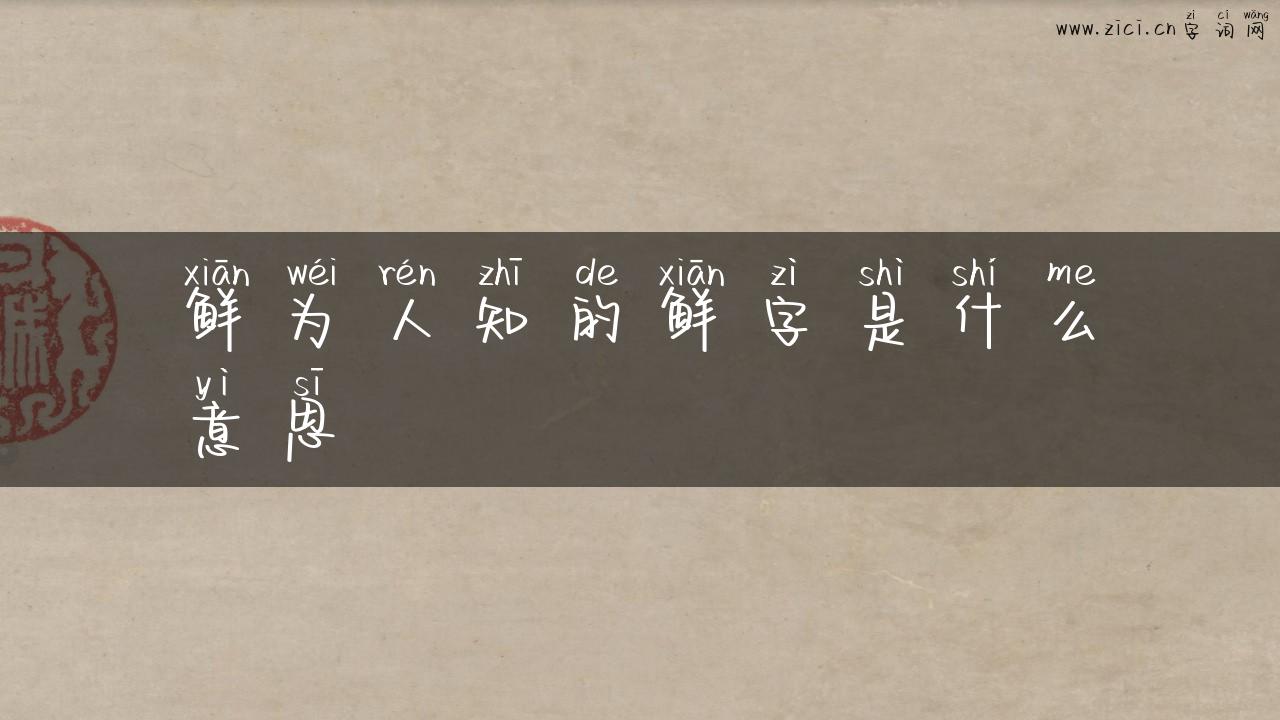 zì cí wǎng
www.zici.cn 字词网
xiān wéi rén zhī de xiān zì shì shí me
鲜为人知的鲜字是什么
yì sī
意思